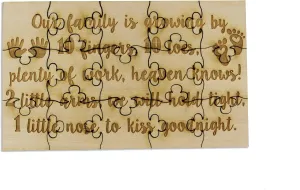 Our family is growing by
10 fingers, 10 toes,
plenty of work, heaven knows!
2 little arms we will hold tight,
1 little nose to kiss goodnight.